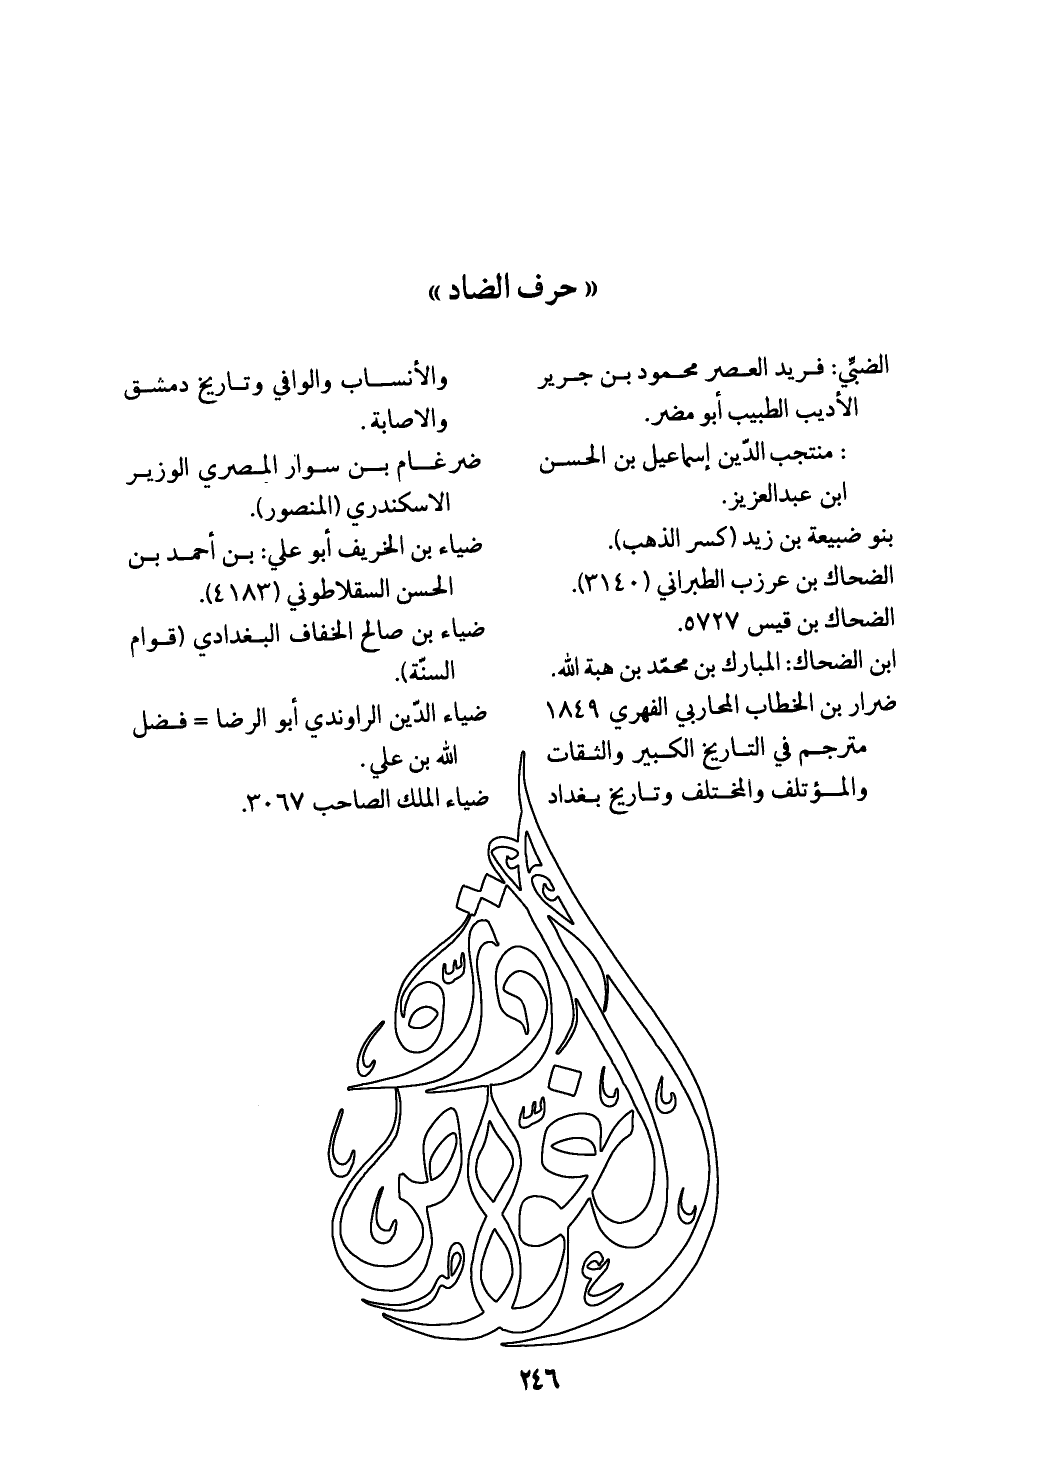 « حرف الضاد »
الضبّي: فريد العصر محمود بن جرير
الأديب الطبيب أبو مضر.
: منتجب الدّين إسماعيل بن الحسن
ابن عبدالعزيز.
بنو ضبيعة بن زيد (كسر الذهب).
الضحاك بن عرزب الطبراني (٣١٤٠).
الضحاك بن قيس ٥٧٢٧.
ابن الضحاك: المبارك بن محمّد بن هبة الله.
ضرار بن الخطاب المحاربي الفهري ١٨٤٩
مترجم في التاريخ الكبير والثقات
والمؤتلف والمختلف وتاريخ بغداد
والأنساب والوافي وتاريخ دمشق
والاصابة.
ضرغام بن سوار المصري الوزير
الاسكندري (المنصور).
ضياء بن الخريف أبو علي: بن أحمد بن
الحسن السقلاطوني (٤١٨٣).
ضياء بن صالح الخفاف البغدادي (قوام
السنّة).
ضياء الدّين الراوندي أبو الرضا = فضل
الله بن علي.
ضياء الملك الصاحب ٣٠٦٧.
٢٤٦